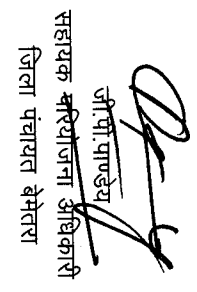 जी.पी.पाण्डेय
सहायक परियोजना अधिकारी
जिला पंचायत बेमेतरा